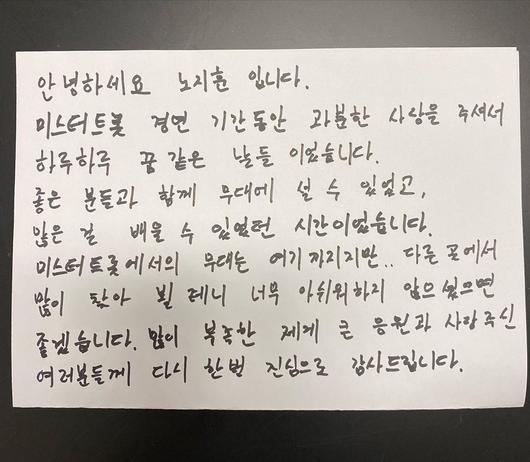 안녕하세요 노지훈 입니다.
미스터트롯 경연 기간동안 과분한 사랑을 주셔서
하루하루 꿈 같은 날들 이었습니다.
좋은 분들과 함께 무대에 설 수 있었고,
많은 걸 배울 수 있었던 시간이었습니다.
미스터트롯에서의 무대는 여기까지지만.. 다른 곳에서
많이 찾아 뵐 테니 너무 아쉬워하지 않으셨으면
좋겠습니다. 많이 부족한 제게 큰 응원과 사랑주신
여러분들께 다시 한번 진심으로 감사드립니다.